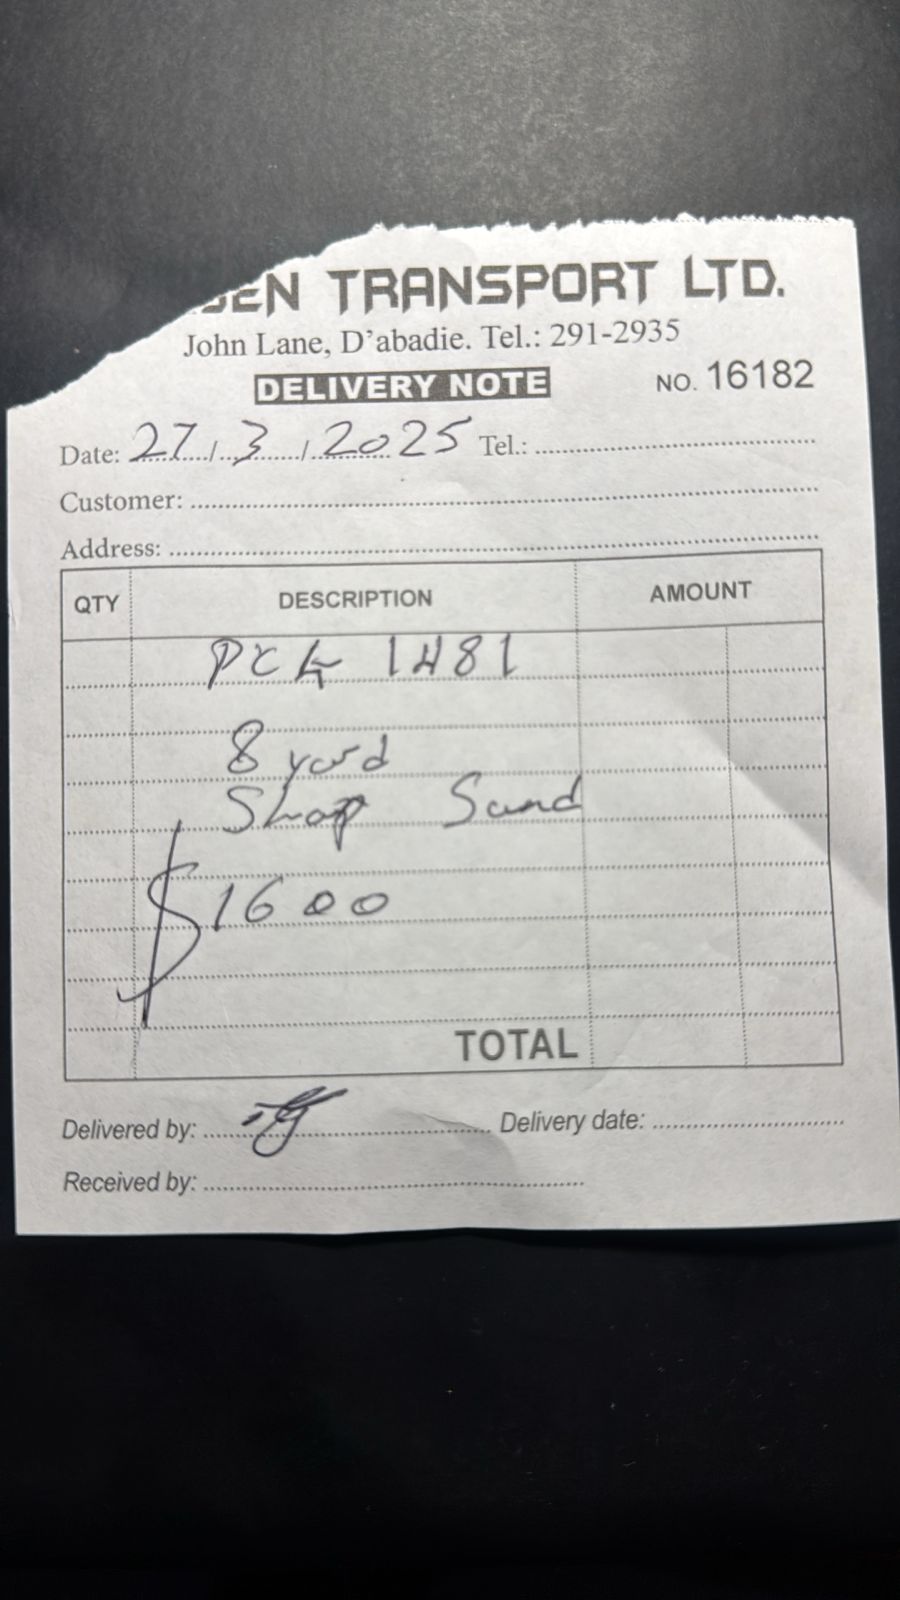 TRANSPORT LTD.
John Lane, D'abadie. Tel.: 291-2935
DELIVERY NOTE NO. 16182
Date: 27/3/2025 Tel.:
Customer:
Address:
QTY DESCRIPTION AMOUNT
1481
8 yard
Shap Sand
$1600
TOTAL
Delivered by: Delivery date:
Received by: